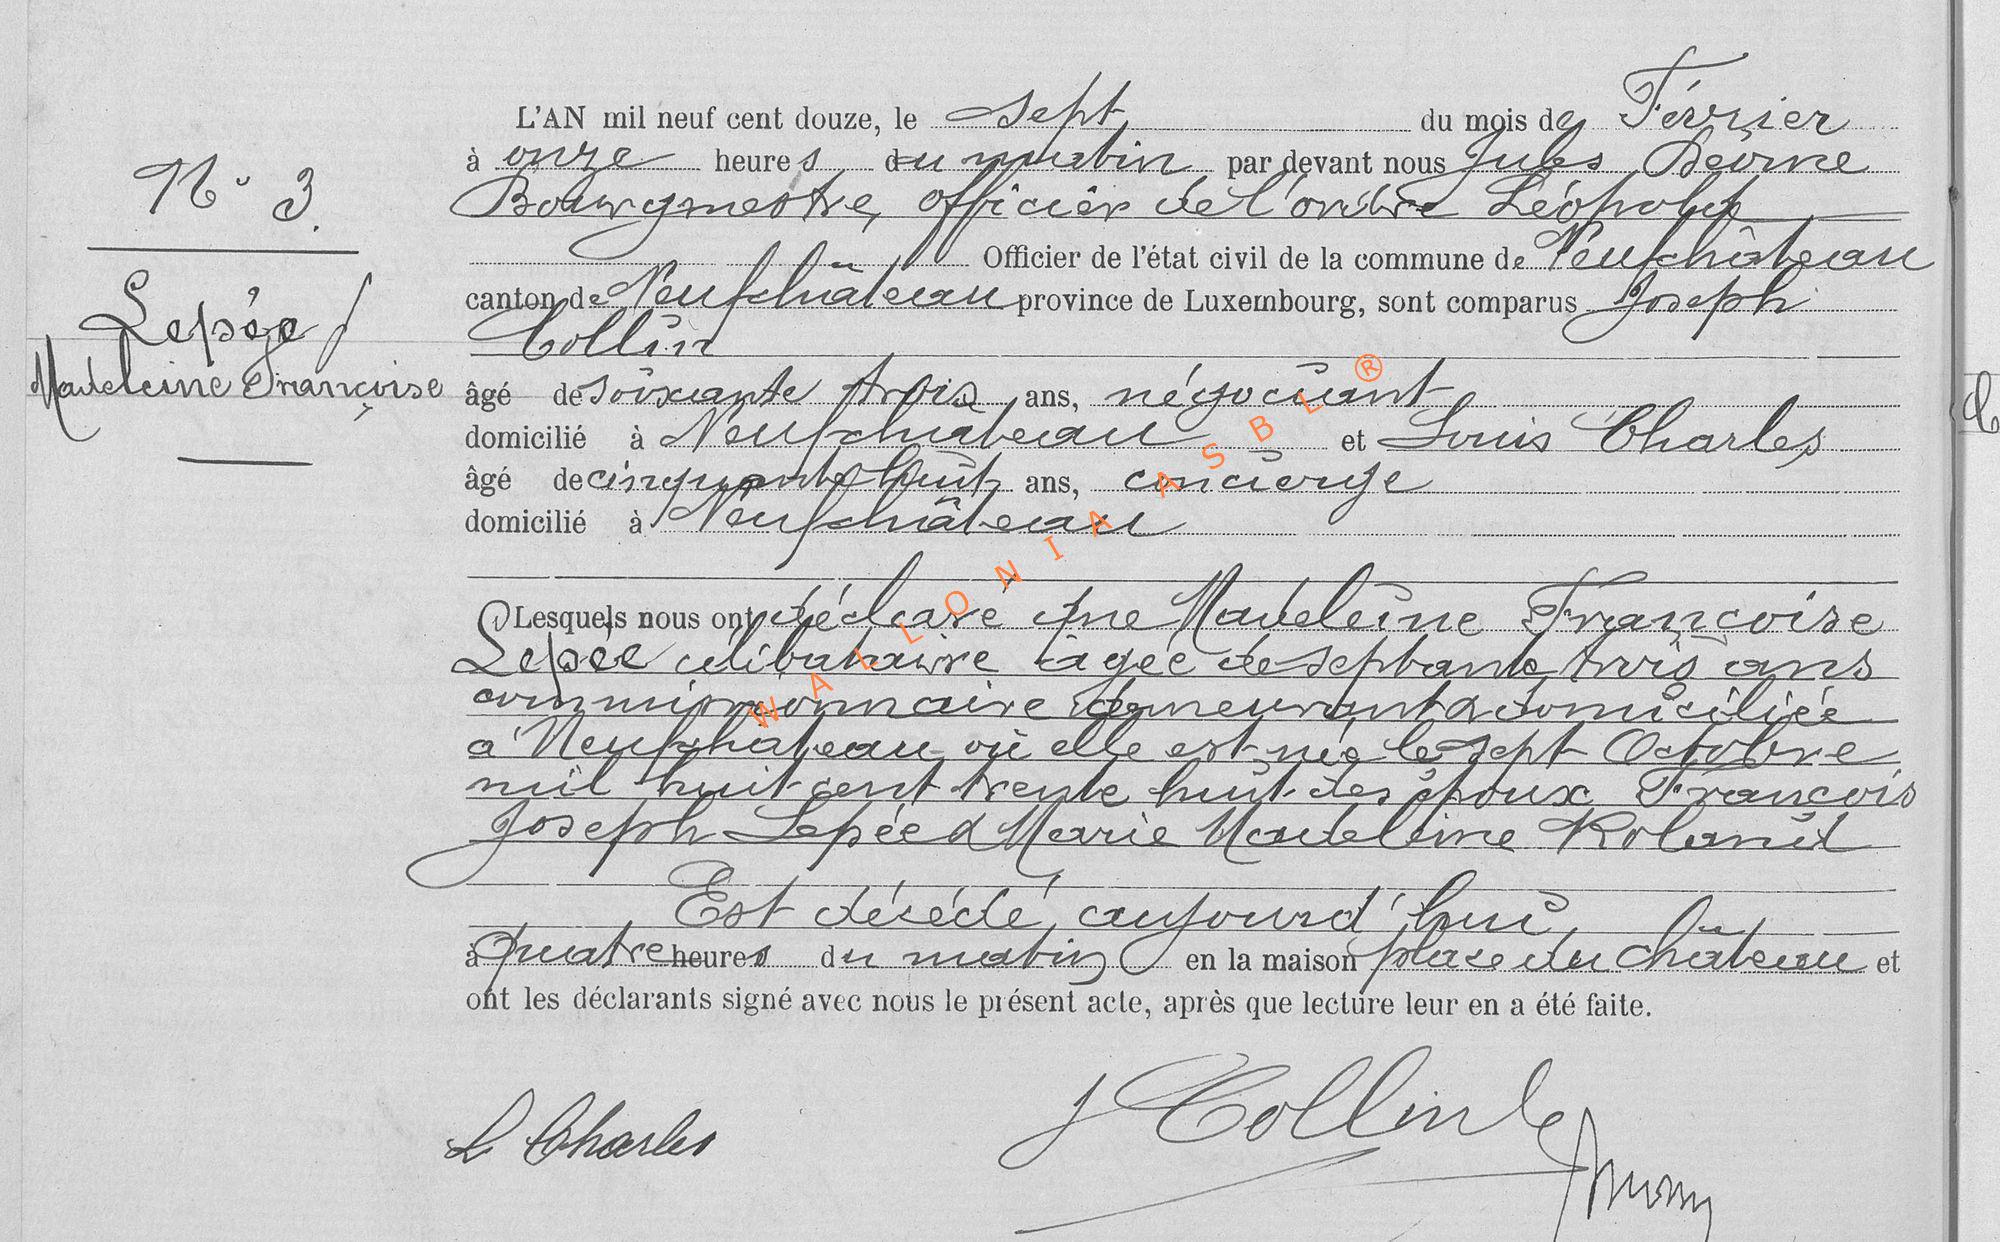 N° 3.
Lepée
Madeleine Françoise
L'AN mil neuf cent douze, le sept du mois de Février
à onze heures du matin par devant nous Jules
Bourgmestre, officier de l'ordre Léopold
Officier de l'état civil de la commune de Neufchâteau
canton de Neufchâteau province de Luxembourg, sont comparus Joseph
Collin
âgé de soixante trois ans, négociant
domicilié à Neufchâteau et Louis Charles
âgé de cinquante huit ans, concierge
domicilié à Neufchâteau
Lesquels nous ont déclaré que Madeleine Françoise
Lepée célibataire âgée de septante trois ans
commissionnaire demeurant & domiciliée
à Neufchateau où elle est née le sept Octobre
mil huit cent trente huit des époux François
Joseph Lepée & Marie Madeleine Roland
Est décédé, aujourd'hui
à quatre heures du matin en la maison place du Château et
ont les déclarants signé avec nous le présent acte, après que lecture leur en a été faite.
L Charles
J Collin
WALLONIA ASBL ®